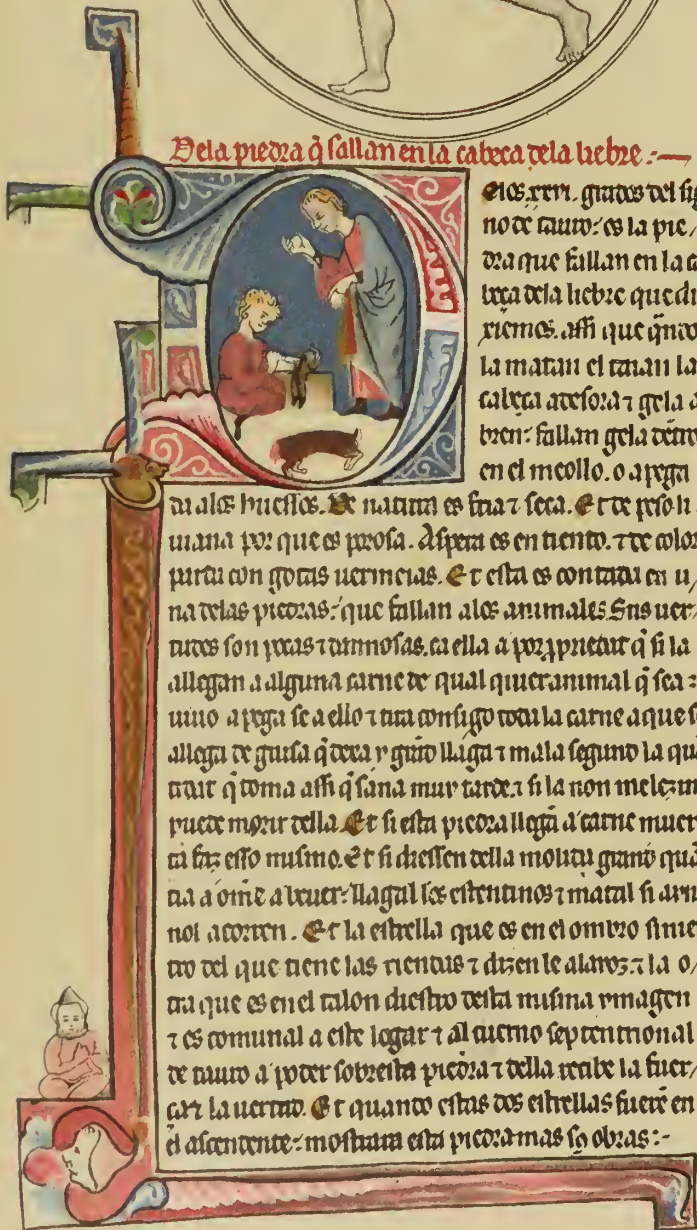 Dela piedra q̄ fallan en la cabeça dela liebre :—
elos .xxvi. grados del sig
no de tauro: es la pie/
dra que fallan en la ca
beça dela liebre que di
xiemos. assi que qñdo
la matan el taian la
cabeça adesora ⁊ gela a
bren: fallan gela dētro
en el meollo. o apega
da alos huessos. De natura es fria ⁊ seca. Et de peso li
uiana por que es porosa. Aspera es en tiento. ⁊ de color
parda con gotas uermeias. Et esta es contada en u/
na delas piedras: que fallan alos animales. Sus uer/
tudes son pocas ⁊ dannosas. ca ella a por ꝓpriedat q̄ si la
allegan a alguna carne de qual quier animal q̄ sea:
uiuo apega se a ello ⁊ tira consigo toda la carne a que se
allega de guisa q̄ dexa y grād llaga ⁊ mala segund la quā
tidat q̄ toma assi q̄ sana muy tarde. ⁊ si la non melezinā
puede morir della. Et si esta piedra llega a carne muer
ta faz esso mismo. Et si diessen della molida grand quā
tia a om̄e a beuer: llagal los estentinos ⁊ matal si ayna
nol acorren. Et la estrella que es en el ombro sinies
tro del que tiene las riendas ⁊ dizen le alayoz. ⁊ la o/
tra que es enel talon diestro desta misma ymagen
⁊ es comunal a este logar ⁊ al cuerno septentrional
de tauro a poder sobresta piedra ⁊ della recibe la fuer/
ça ⁊ la uertud. Et quando estas dos estrellas fuerē en
el ascendente: mostrara esta piedra mas so obras :-